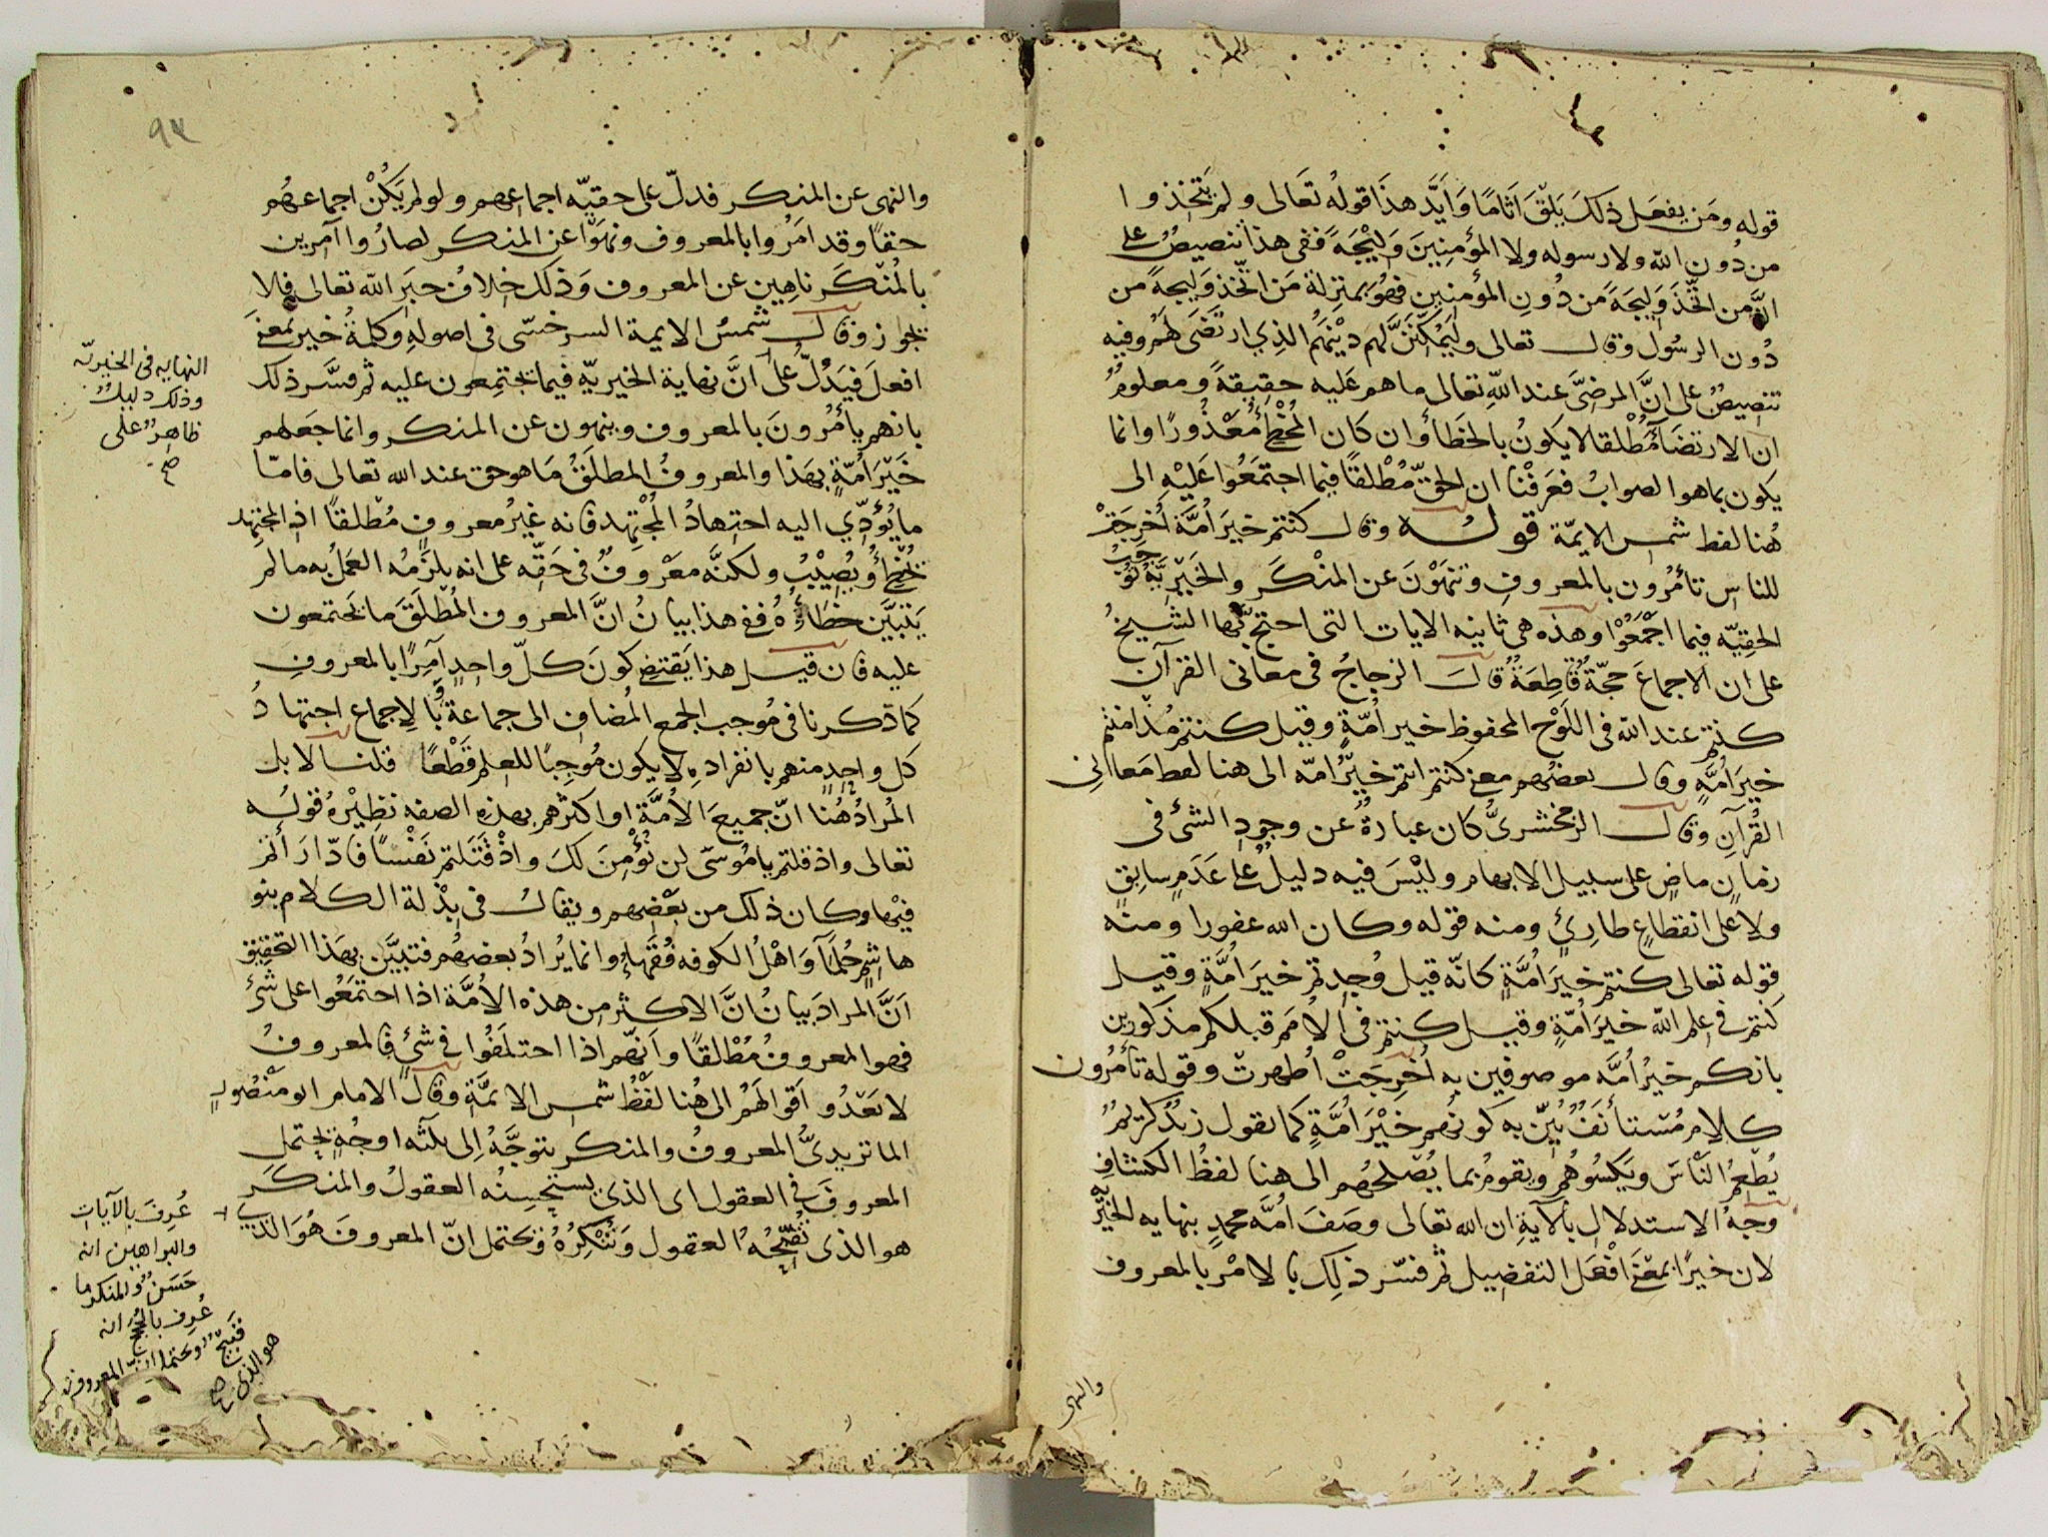 قوله ومَن يفعَل ذلكَ يَلْقَ اَثَامًا وَاَيَّدَ هذَا قولُه تَعَالى ولم يَتَّخِذوا
من دُونِ الله ولا رسوله ولا المؤمِنِينَ وَلِيْجَةً ففى هذا تنصيصٌ على
انَّ من اتَّخذَ وَلِيجَةً مِن دُونِ المؤمنِينِ فهُوَ بمنزلة مَن اتَّخذ وَلِيجةً من
دُون الرسُول وقال تعالى ولَيُمَكِّنَنَّ لهم دِيْنَهُم الذِي ارتَضَى لَهُم وفيه
تنصِيصٌ على انَّ المرضىَّ عند اللّهِ تعالى ماهم عَليه حقِيقةً ومعلومٌ
ان الارتضَآءَ مُطْلقا لايَكونُ بالخَطَأ وان كان المُخْطِئُ مَعْذُورًا وانما
يكون بما هو الصوابُ فعَرَفْنا ان الحقّ مُطْلقًا فيما اجتمَعُوا عَلَيْهِ الى
هُنا لفظ شمس الايمّة قولُــه وقال كنتم خيرَ اُمَّة اُخرِجَتْ
للناس تأمُرُون بالمعروفِ وتنهَوْنَ عن المنْكَر والخَيْرِيَّةُ تُوْجِبُ
الحقِيّه فيما اجْمَعُوْا وهذه هى ثانيه الايات التى احتج بها الشيخُ
على ان الاجماعَ حجّةٌ قَاطِعَةٌ قال الزجاجُ فى معانى القرآن
كنتم عند الله فى اللَوْح المحفوظ خير اُمّةٍ وقيل كنتم مُذْ امنتم
خيرَ اُمّةٍ وقال بعضُهم معنى كنتم انتم خيرُ امّه الى هنا لفظ مَعَانِى
القُرآنِ وقال الزمخشرىُّ كان عبارةٌ عن وجودِ الشئ فى
زمانٍ ماضٍ على سبيل الابهام وليْسَ فيه دليلٌ على عَدَمٍ سابقٍ
ولا على انقطاعٍ طارِئٍ ومنه قوله وكان الله غفورا ومنه
قوله تعالى كنتم خيرَ اُمّةٍ كانّه قيل وُجِدتم خيرَ اُمَّةٍ وقيل
كنتم فى علم الله خيرَ اُمّةٍ وقيل كنتم فى الاُمَم قبلكم مذكورين
بانكم خيرُ اُمّه موصوفين به اُخرِجَتْ اُظهرت وقوله تأمُرُون
كلام مُستأنَفٌ بُيِّن به كونُهم خَيْرَ اُمَّةٍ كما تقول زيدٌ كرِيمٌ
يُطعِمُ النَاسَ ويَكسُوهُم ويقومُ بما يُصْلحُهم الى هنا لفظُ الكشّافِ
وجهُ الاستدلال بالآيةِ ان الله تعالى وصَفَ اُمّه محمدٍ بنهايه الخيريّه
لان خيرًا بمعْنَى اَفْعَل التفضِيل ثم فسّر ذلِك بالامْر بالمعروف
والنهى
٩٣
والنهى عن المنكر فدلّ على حقيّه اجماعِهم ولو لم يَكُنْ اجماعهُم
حقًا وقد امَرُوا بالمعروف ونهَوْا عن المنكر لصارُوا آمِرِين
بالمُنْكَر ناهِين عن المعروف وَذلك خِلافُ خبَرِ الله تعالى فلا
يجوز وقال شمسُ الايمة السرخسّى فى اصولهِ وكلمةُ خير بمعنى
افعل فيَدُلّ على انَّ نهاية الخيريّهِ فيما يجتمِعون عليه ثم فسَّر ذلك
بانهم يأمُرُونَ بالمعروف وينهون عن المنكر وانما جَعَلهم
خَيْرَ اُمّةٍ بهذا والمعروفُ المطلَقُ مَا هو حق عند الله تعالى فامّا
ما يُؤَدّي اليه اجتهادُ المُجْتهد فانه غيرُ معروفٍ مُطْلقًا اذ المجتهد
يُخْطِئُ ويُصِيْبُ ولكنَّه معْرُوفٌ فى حَقِّه على انه يلزَمُه العمَلُ به ما لم
يَتَبَيَّن خَطَاؤُهُ ففى هذا بيانُ انَّ المعروف المُطْلَقَ ما يَجتمعون
عليه فان قيل هذا يَقتضِى كونَ كلّ واحِدٍ آمِرًا بالمعروفِ
كما ذكرنا فى مُوجب الجمع المُضافِ الى جماعة وبالاِجماع اجتهادُ
كل واحِدٍ منهم بانفرادهِ لا يكون مُوجِبًا للعلم قَطْعًا قلنا لا بل
المُرادُ هُنا انّ جميعَ الاُمَّة او اكثرهم بهذه الصفه نظِيْرهُ قولُه
تعالى واذ قلتم يا مُوسَى لن نُؤْمِنَ لكَ واذْ قَتَلتم نَفْسًا فادّارَأتم
فيْها وكان ذلك من بَعْضِهم ويقالُ فى بِذْلة الكلام بنو
هاشِمٍ حُلَمآءُ وَاهْلُ الكوفه فُقَهآءُ وانما يُرادُ بعضهُم فتبيَّن بهَذا التحقِيق
اَنَّ المرادَ بيانُ انَّ الاكثر من هذه الاُمَّة اذا اجتمَعُوا على شَئ
فهو المعروفُ مُطْلقًا وانّهم اذا اختلَفُوا فى شئٍ فالمعروفُ
لا يَعْدُو اَقوالَهُم الى هُنا لفْظُ شمس الايمَّةِ وقال الامام ابو مَنْصُورٍ
الماتريدىُّ المعروفُ والمنكر يتوجَّهُ اِلى ثلثه اوجُهٍ يحتمل
المعروفَ فى العقول اى الذى يستحسِنُه العقولُ والمنكَر
هو الذى تُقَبِّحُهُ العقول وتُنْكِرُهُ ويحتمل انّ المعروفَ هُوَ الذى
النهايه فى الخيريّه
وذلك دليلٌ
ظاهِرٌ على
صح
عُرِفَ بالآيات
والبراهين انه
حَسَنٌ والمنكر ما
عُرِف بالحُجَج انه
قَبِيحٌ ويحتمل انّ المعروف
هو الذى صح